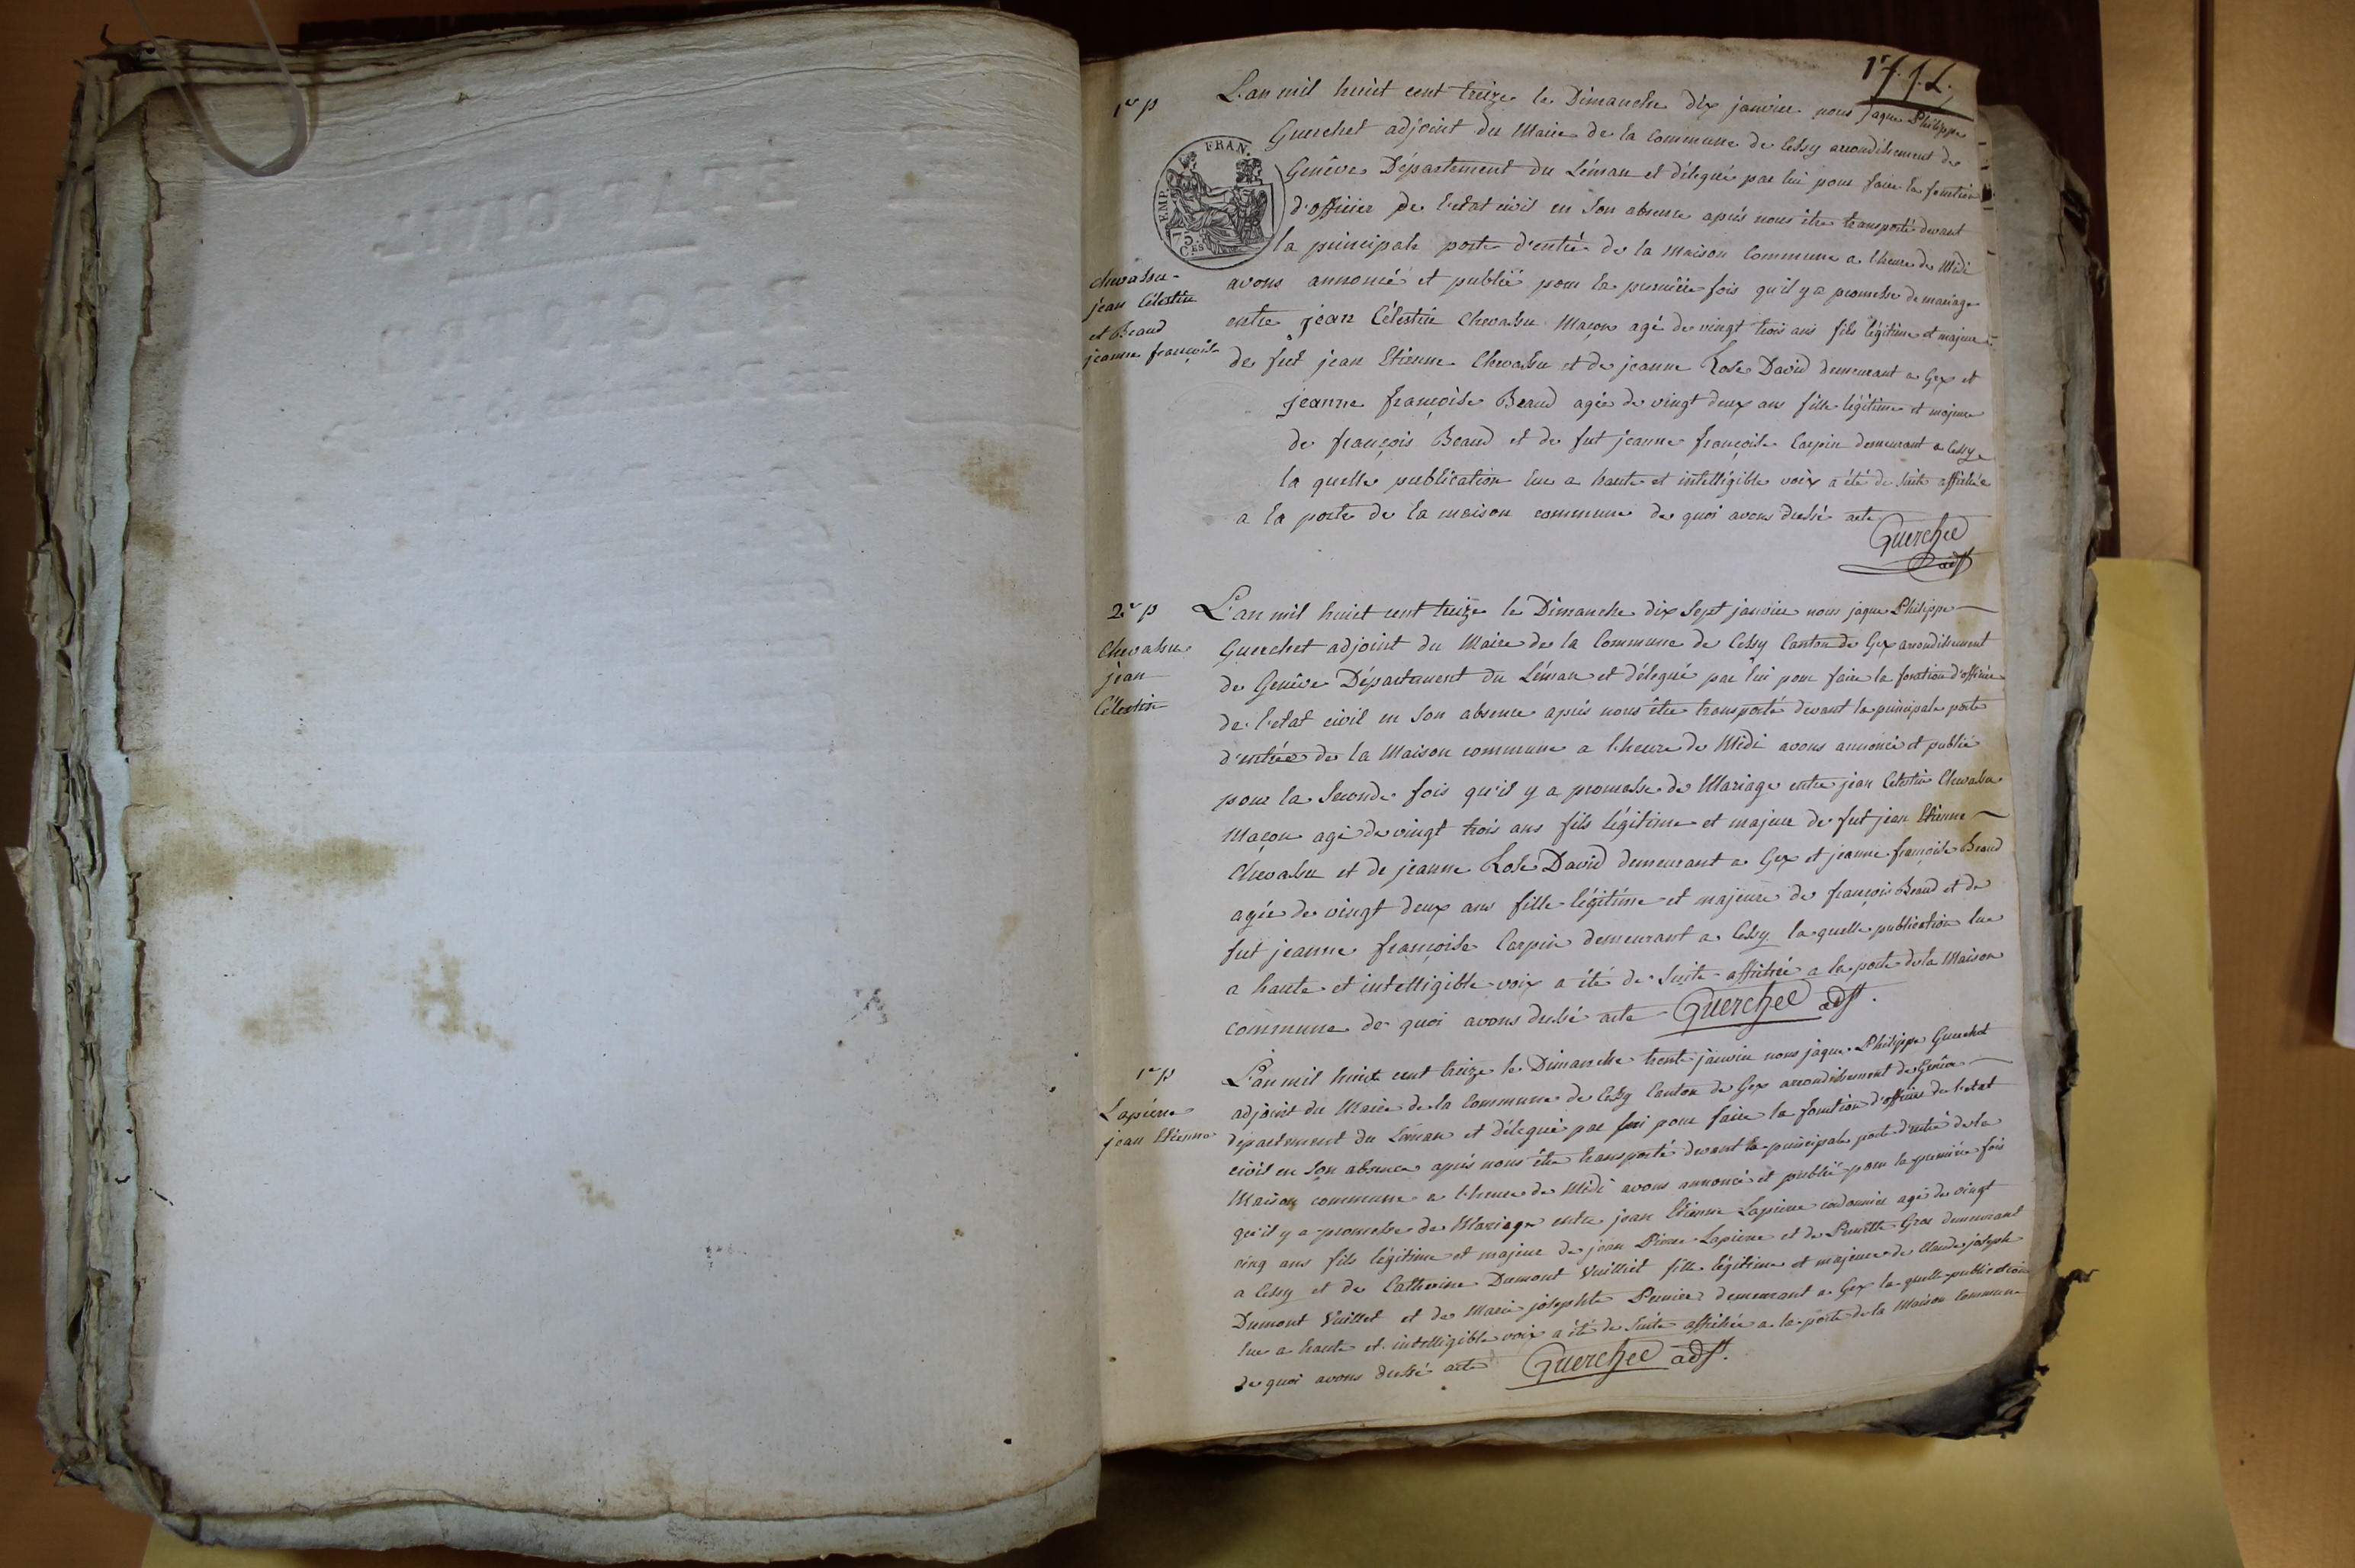 1er p
L'an mil huit cent treize le Dimanche dix janvier nous jaque Philippe
Guerchet adjoint du Maire de la Commune de Cessy arrondissement de
Genêve Département du Léman et délegué par lui pour faire la fonction
d'officier de l'etat civil en son absence aprés nous être transporté devant
la principale porte d'entrée de la Maison Commune a l'heure de Midi
avons annoncé et publié pour la premiére fois qu'il y a promesse de mariage
entre jean Célestin Chevassu Maçon agé de vingt trois ans fils légitime et majeur
de fut jean Etienne Chevassu et de jeanne Rose David demeurant a Gex et
jeanne françoise Beaud agée de vingt deux ans fille légitime et majeure
de françois Beaud et de fut jeanne françoise Carpin demeurant a Cessy
la quelle publication lue a haute et intelligible voix a été de suite affichée
a la porte de la maison commune de quoi avons dressé acte
Guerchet
adjt
chevassu
jean Célestin
et Beaud
jeanne françoise
FRAN.
EMP.
75
C.ES
2e p
Chevassu
jean
Célestin
L'an mil huit cent treize le Dimanche dix sept janvier nous jaque Philippe
Guerchet adjoint du Maire de la Commune de Cessy Canton de Gex arrondissement
de Genêve Département du Léman et délegué par lui pour faire la fonction d'officier
de l'etat civil en son absence aprés nous être transporté devant la principale porte
d'entrée de la Maison commune a l'heure de Midi avons annoncé et publié
pour la seconde fois qu'il y a promesse de Mariage entre jean Célestin Chevassu
Maçon agé de vingt trois ans fils légitime et majeur de fut jean Etienne
Chevassu et de jeanne Rose David demeurant a Gex et jeanne françoise Beaud
agée de vingt deux ans fille légitime et majeure de françois Beaud et de
fut jeanne françoise Carpin demeurant a Cessy la quelle publication lue
a haute et intelligible voix a été de suite affichée a la porte de la Maison
commune de quoi avons dressé acte Guerchet adjt.
1er p
Lapierre
jean Etienne
L'an mil huit cent treize le Dimanche trente janvier nous jaque Philippe Guerchet
adjoint du Maire de la Commune de Cessy Canton de Gex arrondissement de Genêve
département du Léman et délegué par lui pour faire la fonction d'officier de l'etat
civil en son absence aprés nous être transporté devant la principale porte d'entrée de la
Maison commune a l'heure de Midi avons annoncé et publié pour la premiére fois
qu'il y a promesse de Mariage entre jean Etienne Lapierre cordonnier agé de vingt
cinq ans fils légitime et majeur de jean Pierre Lapierre et de Pernette Gros demeurant
a Cessy et de Catherine Dumont Vuilliet fille légitime et majeure de Claude joseph
Dumont Vuillet et de Marie josephte Perrier demeurant a Gex la quelle publication
lue a haute et intelligible voix a été de suite affichée a la porte de la Maison Commune
de quoi avons dressé acte Guerchet adjt.